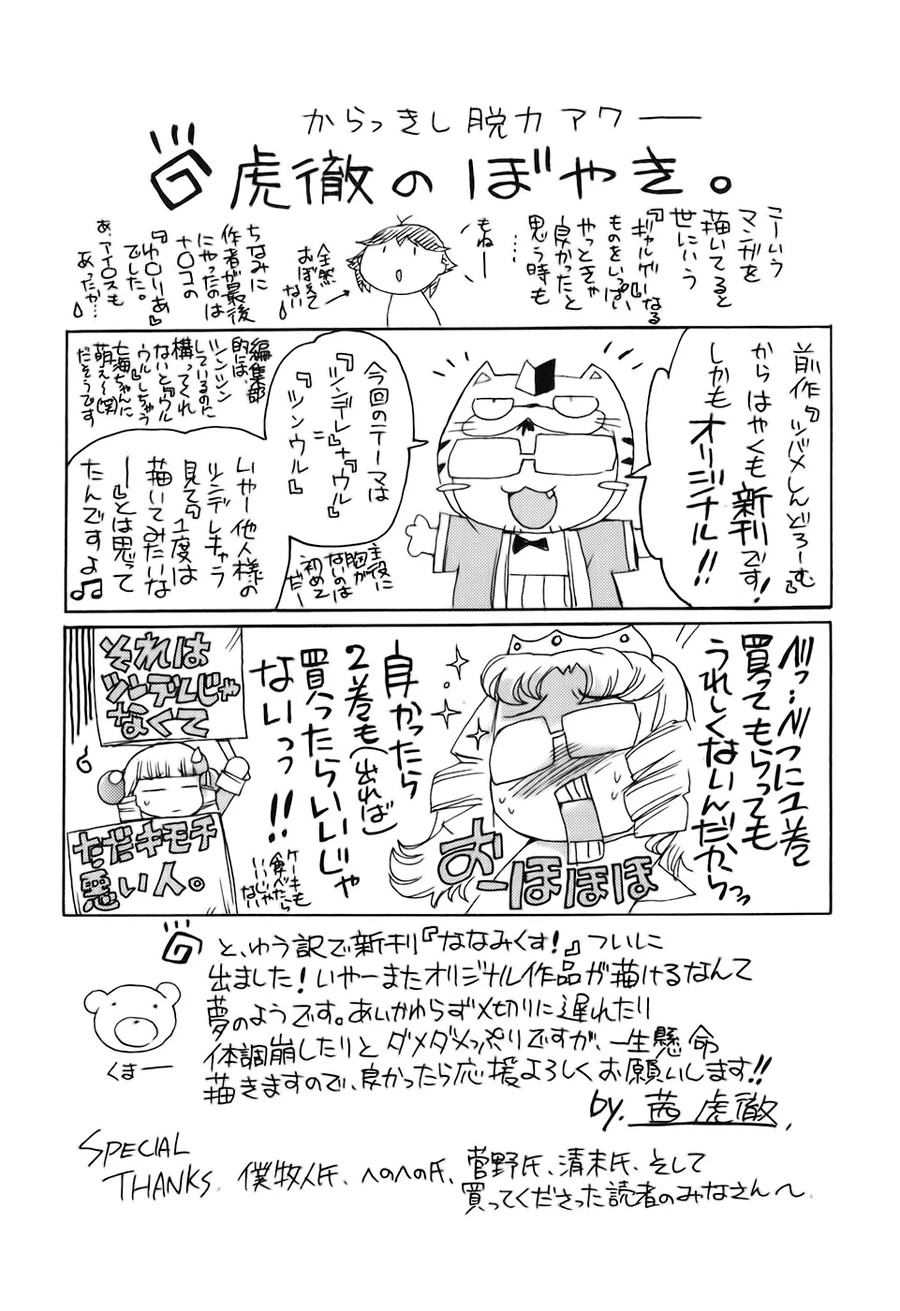 からっきし脱力アワー
虎徹のぼやき。
こーいう
マンガを
描いてると
世にいう
『ギャルゲー』なる
ものをいっぱい
やっときゃ
良かったと
思う時も
……
もねー
全然
おぼえて
ない
ちなみに
作者が最後
にやったのは
ナ○コの
『ゆ○りあ』
でした。
あ、アイ○スも
あったか…
前作『ツバメしんどろーむ』
からはやくも新刊です!
しかもオリジナル!!
今回のテーマは
『ツンデレ』+『ウル』
=
『ツンウル』
編集部
的には、
ツンツン
しているのに
構ってくれ
ないと『ウル
ウル』しちゃう
七海ちゃんに
萌え〜(笑)
だそうです
主役に
胸が
ないのは
初めて
だー
いやー他人様の
ツンデレキャラ
見て『1度は
描いてみたいな
ー』とは思って
たんですよ♫
べっ…べつに1巻
買ってもらっても
うれしくないんだからっ
おーほほほほ
良かったら
2巻も(出れば)
買ったらいいじゃ
ないっっ!!
ケーキも
食べたら
いいじゃ
ない
それは
ツンデレじゃ
なくて
ただキモチ
悪い人。
と、ゆう訳で新刊『ななみくす!』ついに
出ました!いやーまたオリジナル作品が描けるなんて
夢のようです。あいかわらず〆切りに遅れたり
体調崩したりとダメダメっぷりですが、一生懸命
描きますので、良かったら応援よろしくお願いします!!
くまー
by. 茜虎徹.
SPECIAL
THANKS. 僕牧人氏、へのへの氏、菅野氏、清末氏、そして
買ってくださった読者のみなさん〜.